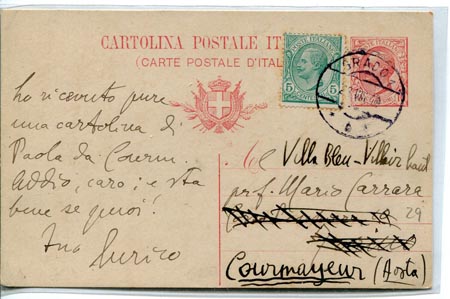 CARTOLINA POSTALE IT
(CARTE POSTALE D'ITAL
POSTE ITALIANE
5 5
GRADO
ho ricevuto pure
una cartolina di
Paola da Courm.
Addio, caro; e sta
bene se puoi!
tuo Enrico
Villa Bleu - Villair
prof. Mario Carrara
29
Courmayeur (Aosta)